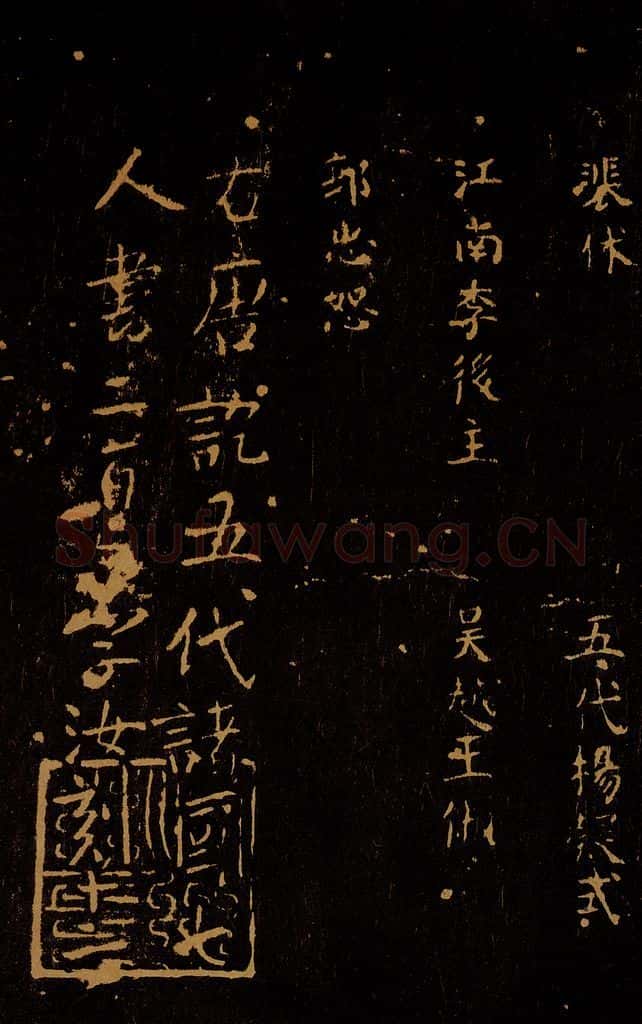 裴休 五代楊凝式
江南李後主 吳越王俶
郭忠恕
右唐訖五代諸國七
人書二百字汝刻十二
Shufawang.CN